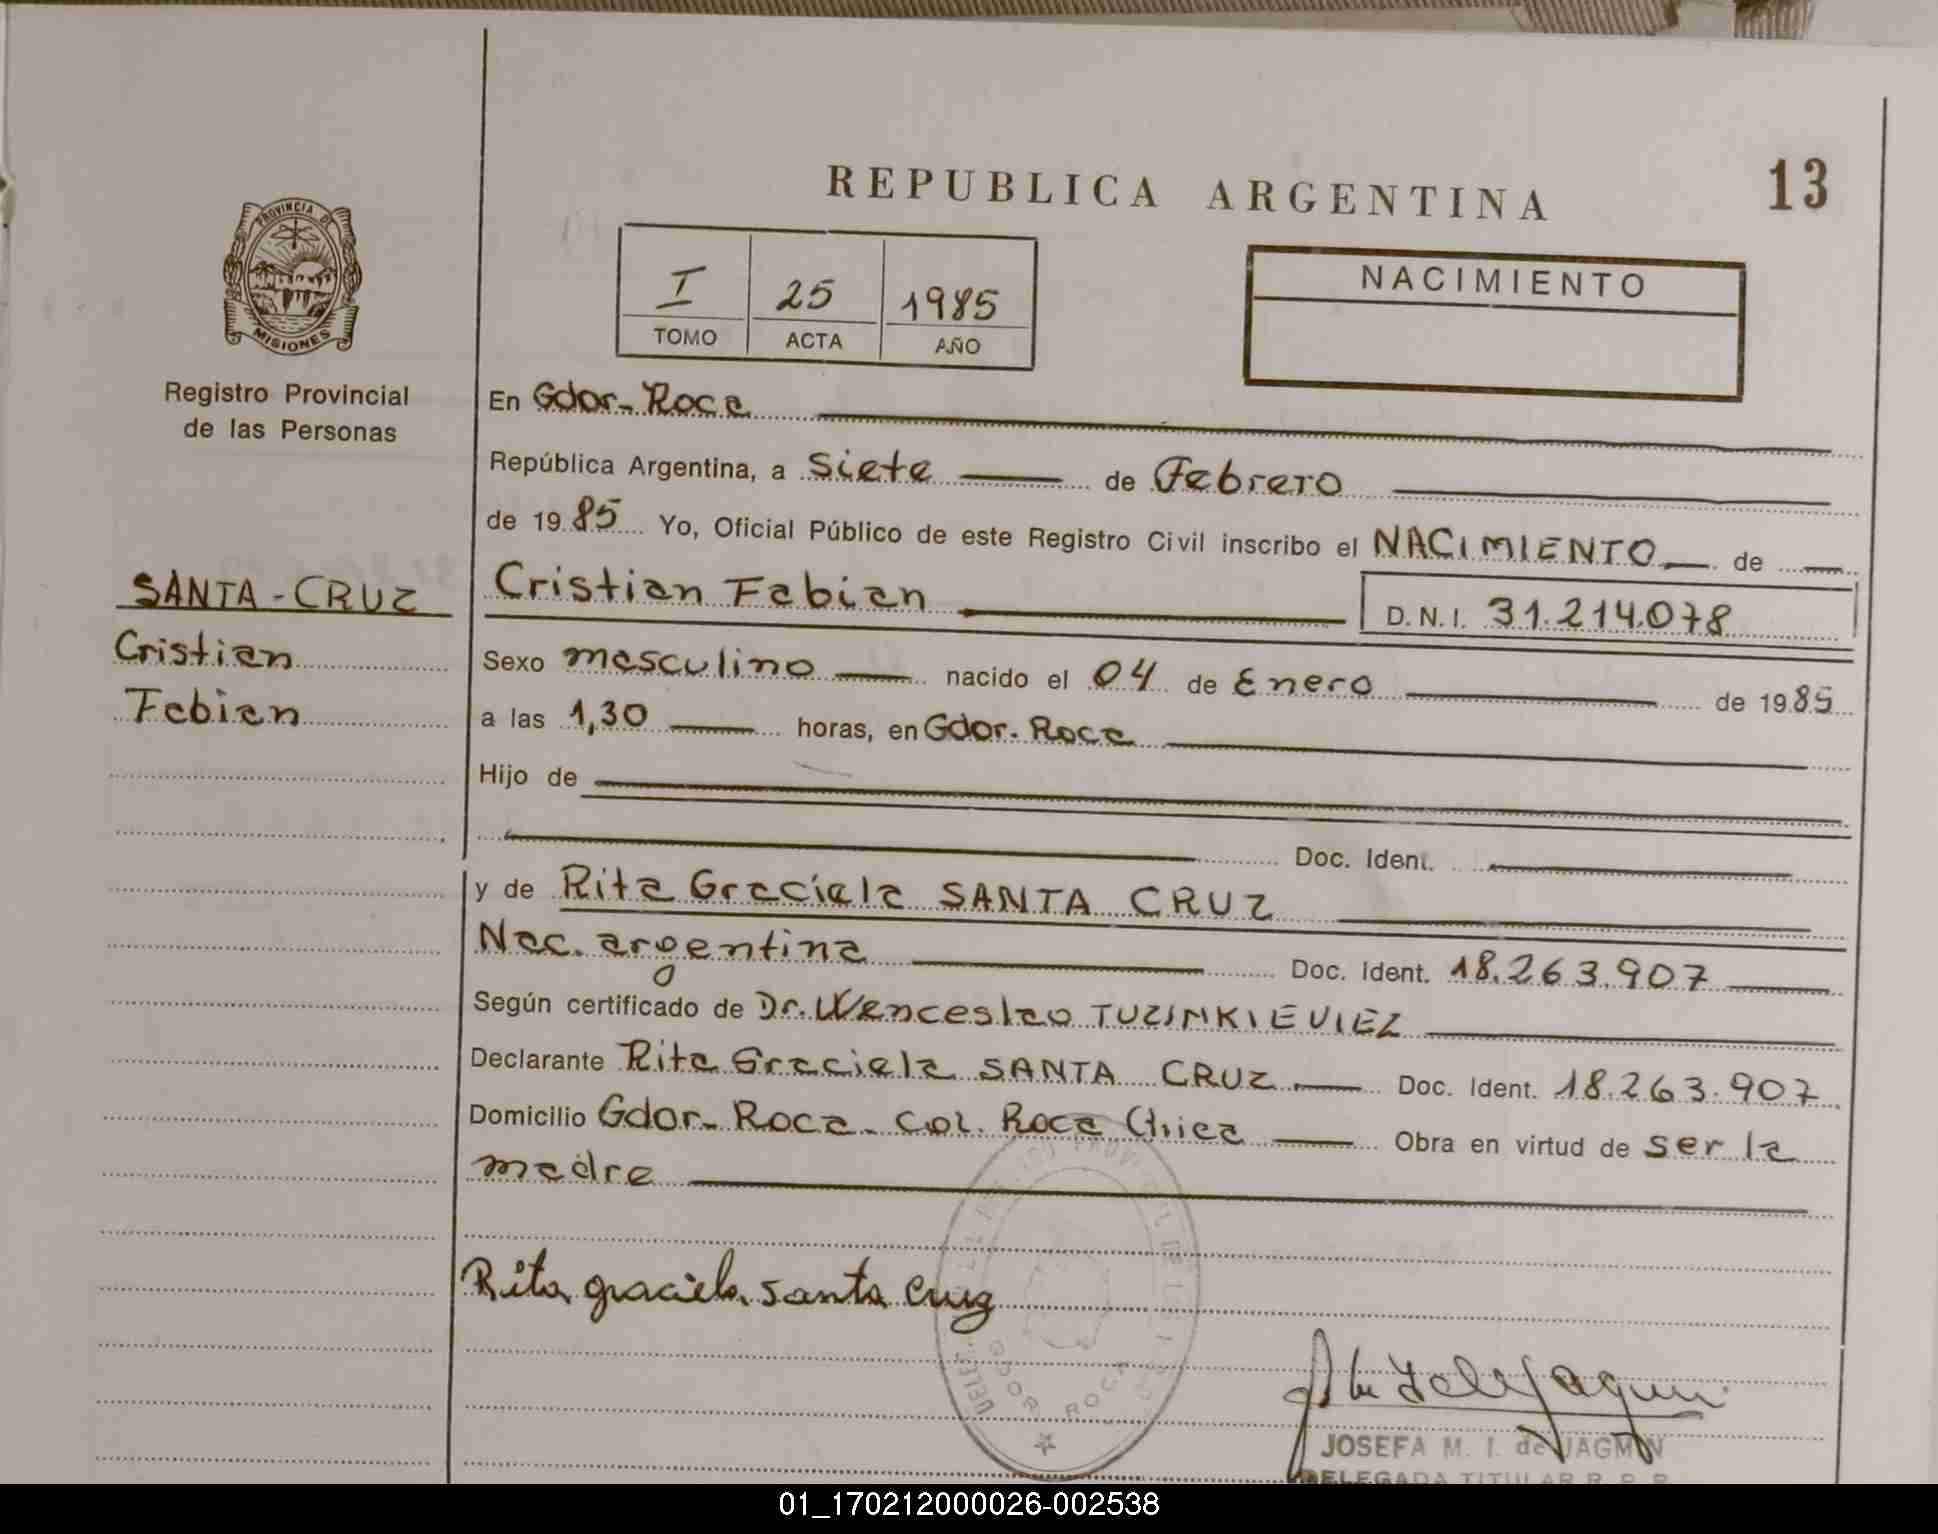 REPUBLICA ARGENTINA
13
PROVINCIA DE
MISIONES
Registro Provincial
de las Personas
I 25 1985
TOMO ACTA AÑO
NACIMIENTO
En Gdor. Roca
República Argentina, a siete de Febrero
de 1985 Yo, Oficial Público de este Registro Civil inscribo el NACIMIENTO de
SANTA-CRUZ
Cristian
Fabian
Cristian Fabian D.N.I. 31.214.078
Sexo masculino nacido el 04 de Enero de 1985
a las 1,30 horas, en Gdor. Roca
Hijo de
Doc. Ident.
y de Rita Graciela SANTA CRUZ
Nac. argentina Doc. Ident. 18.263.907
Según certificado de Dr. Wenceslao TUZINKIEVIEZ
Declarante Rita Graciela SANTA CRUZ Doc. Ident. 18.263.907
Domicilio Gdor. Roca. Col. Roca Chica Obra en virtud de ser la
madre
Rita graciela santa cruz
GDOR ROCA
JOSEFA M. I. de JAGMIN
DELEGADA TITULAR R. P. P.
01_170212000026-002538